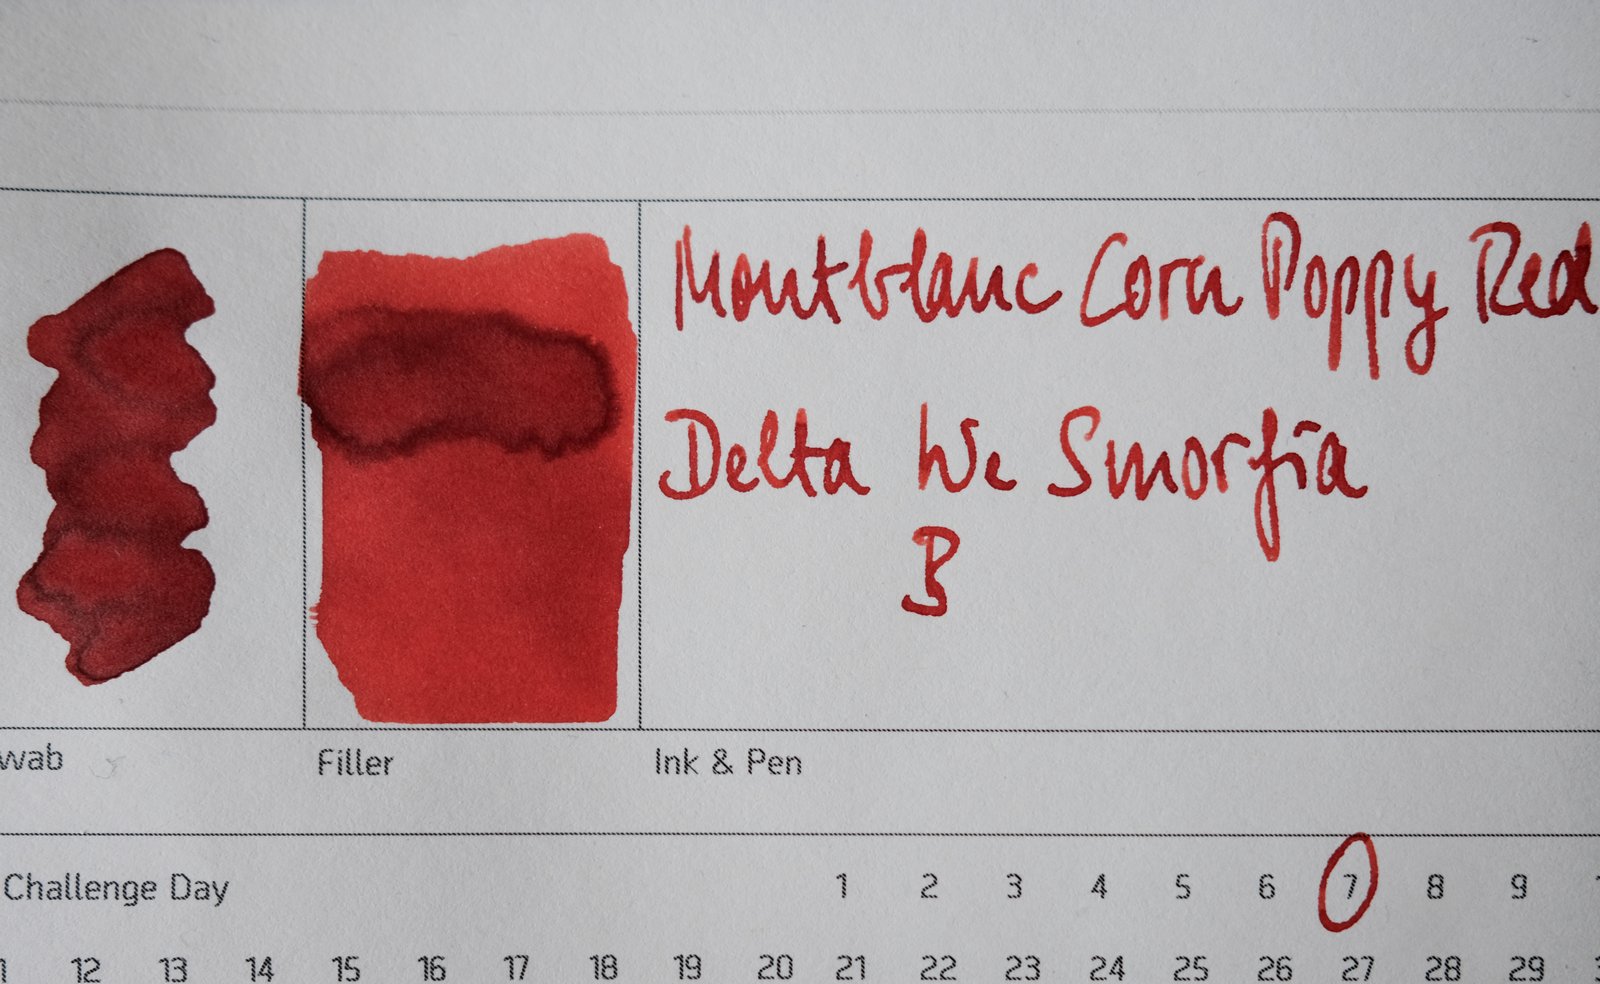 Montblanc Corn Poppy Red
Delta We Smorfia
B
wab Filler Ink & Pen
Challenge Day 1 2 3 4 5 6 7 8 9
12 13 14 15 16 17 18 19 20 21 22 23 24 25 26 27 28 29